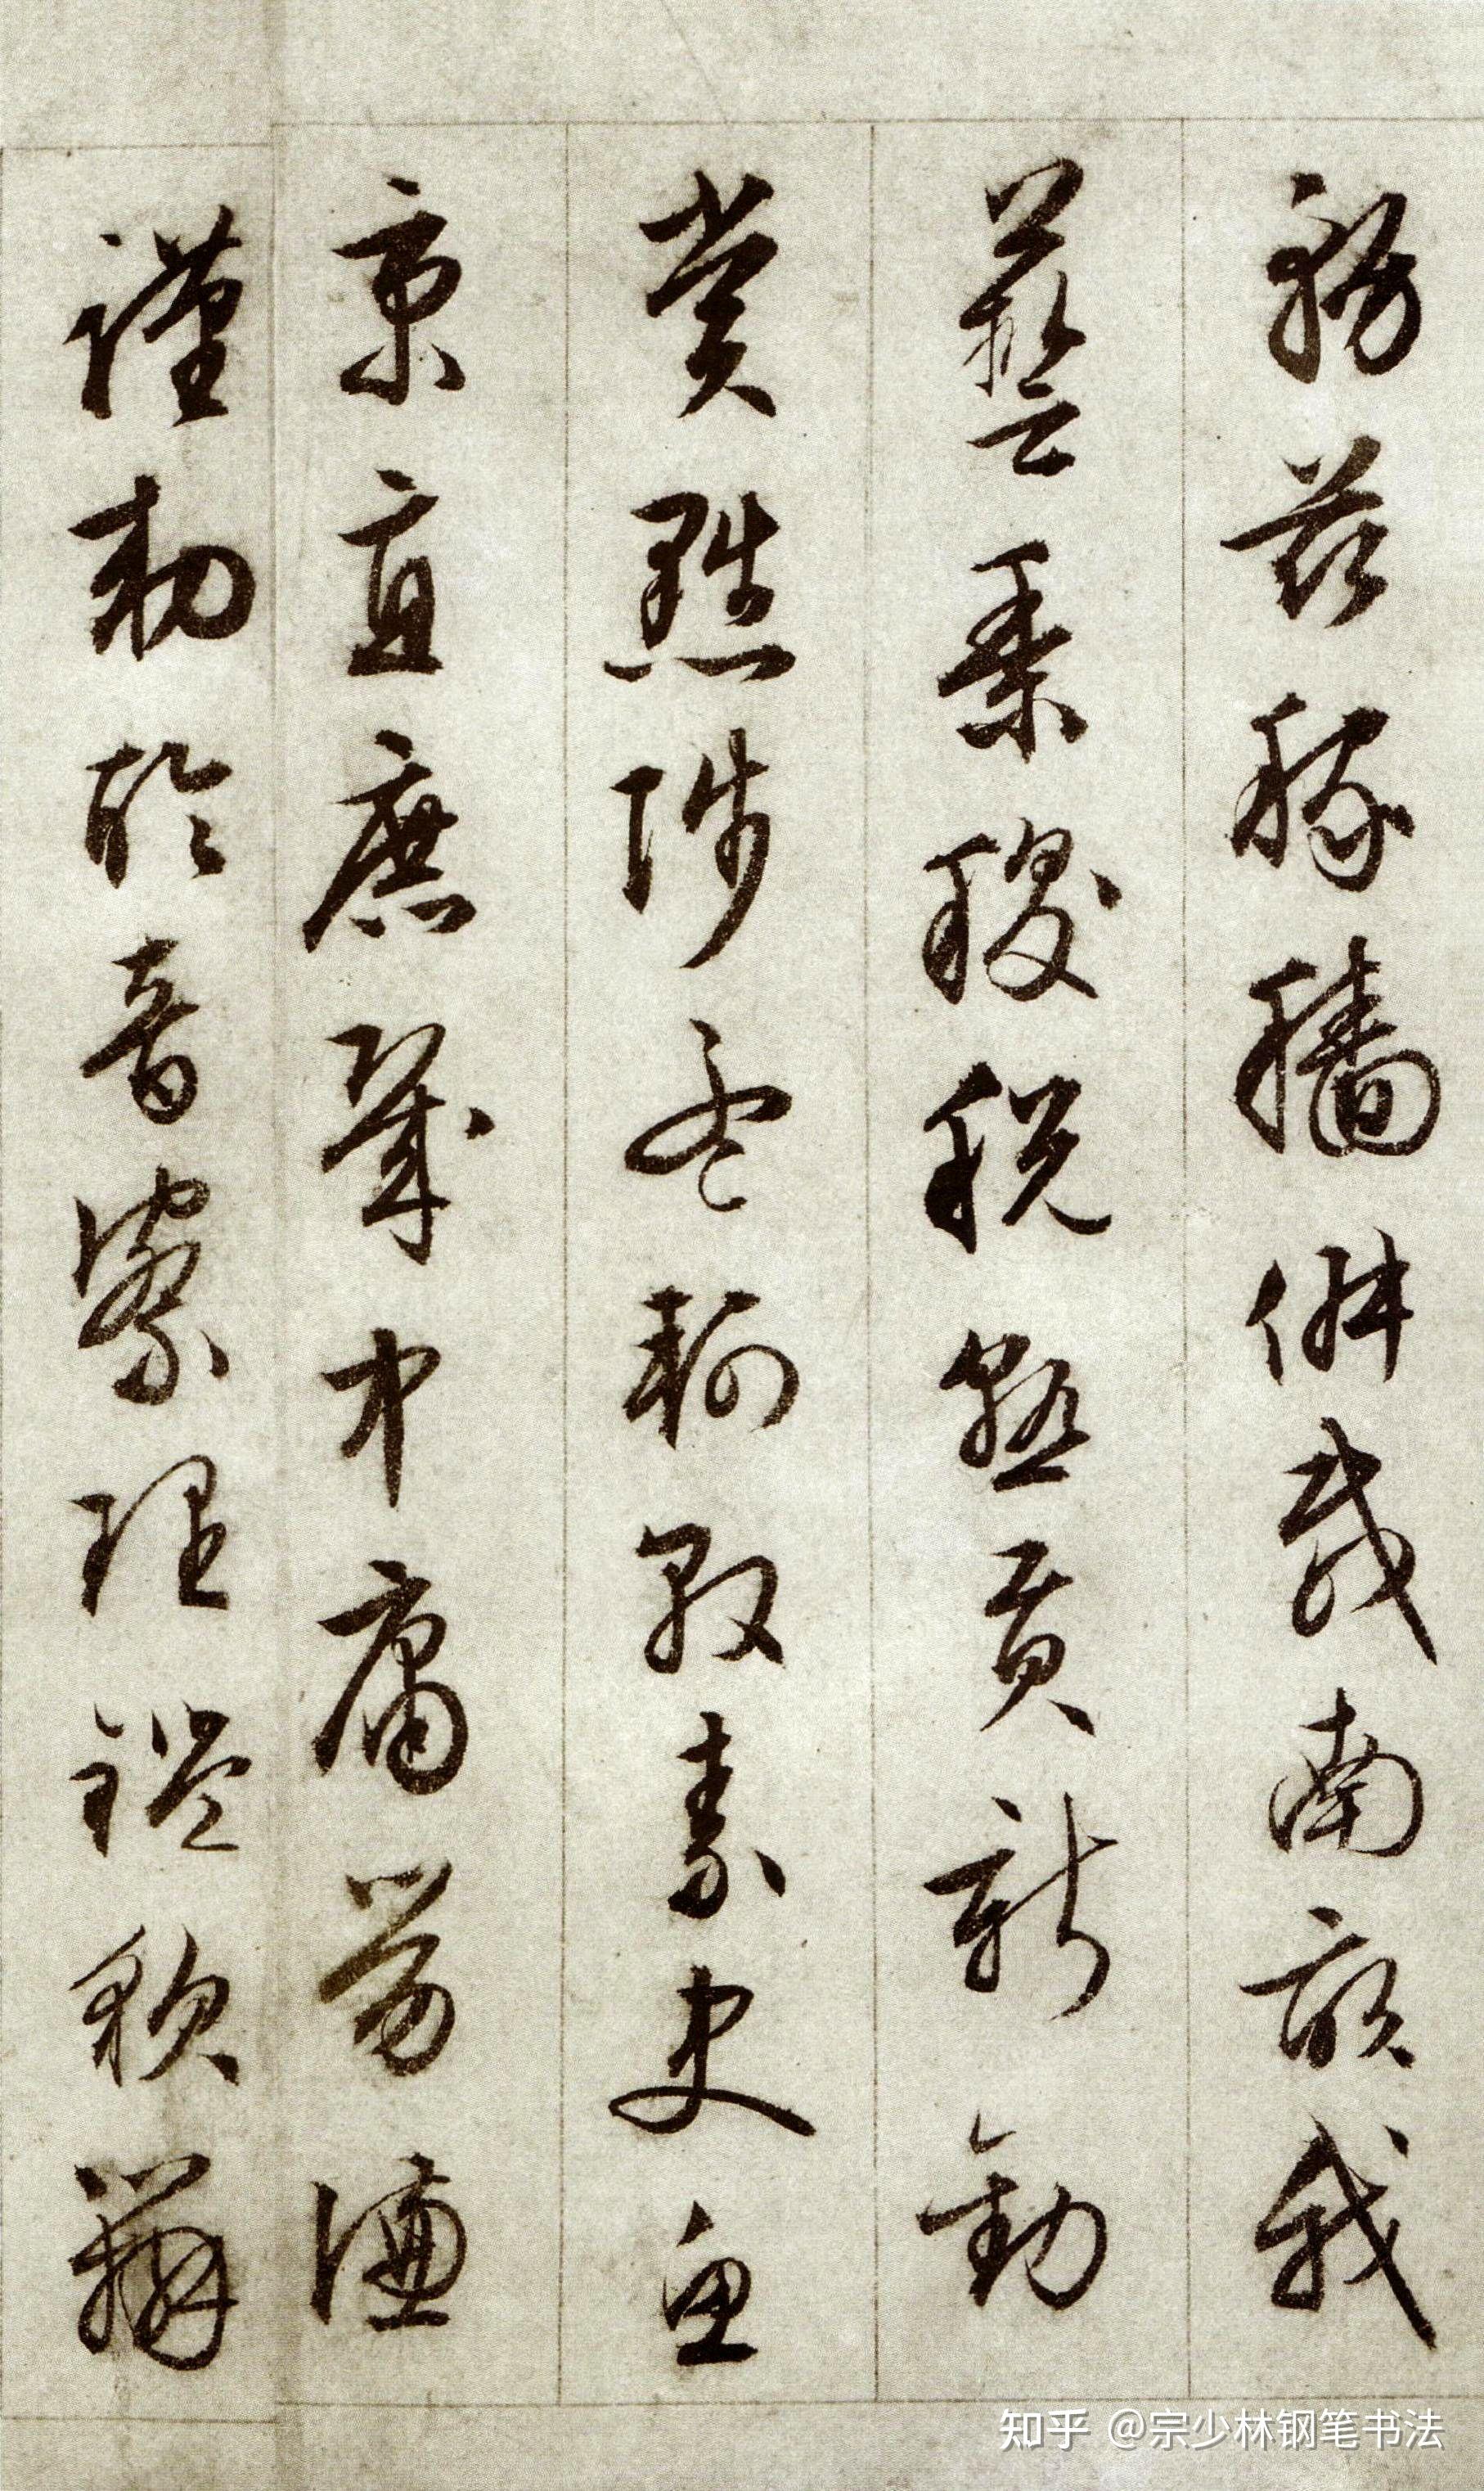 務茲稼穡俶載南畝我
藝黍稷稅熟貢新勸
賞黜陟孟軻敦素史魚
秉直庶幾中庸勞謙
謹勅聆音察理鑒貌辯
知乎 @宗少林钢笔书法